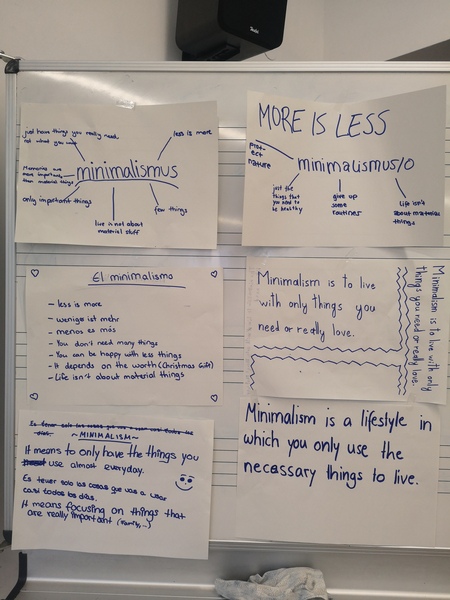 just have things you really need,
not what you
less is more
Memories are
more important
than material things
minimalismus
only important things
few things
live is not about
material stuff
MORE IS LESS
prot-
ect
nature
minimalismus/o
just the
things that
you need to
be healthy
give up
some
routines
Life isn't
about materialistic
things
El minimalismo
- less is more
- weniger ist mehr
- menos es más
- You don't need many things
- You can be happy with less things
- It depends on the worth (Christmas Gift)
- Life isn't about material things
Minimalism is to live
with only things you
need or really love.
Minimalism is to live with only
things you need or really love.
~ MINIMALISM ~
It means to only have the things you
use almost everyday.
Es tener solo las cosas que vas a usar
casi todos los días.
It means focusing on things that
are really important (family,...)
Minimalism is a lifestyle in
which you only use the
necessary things to live.